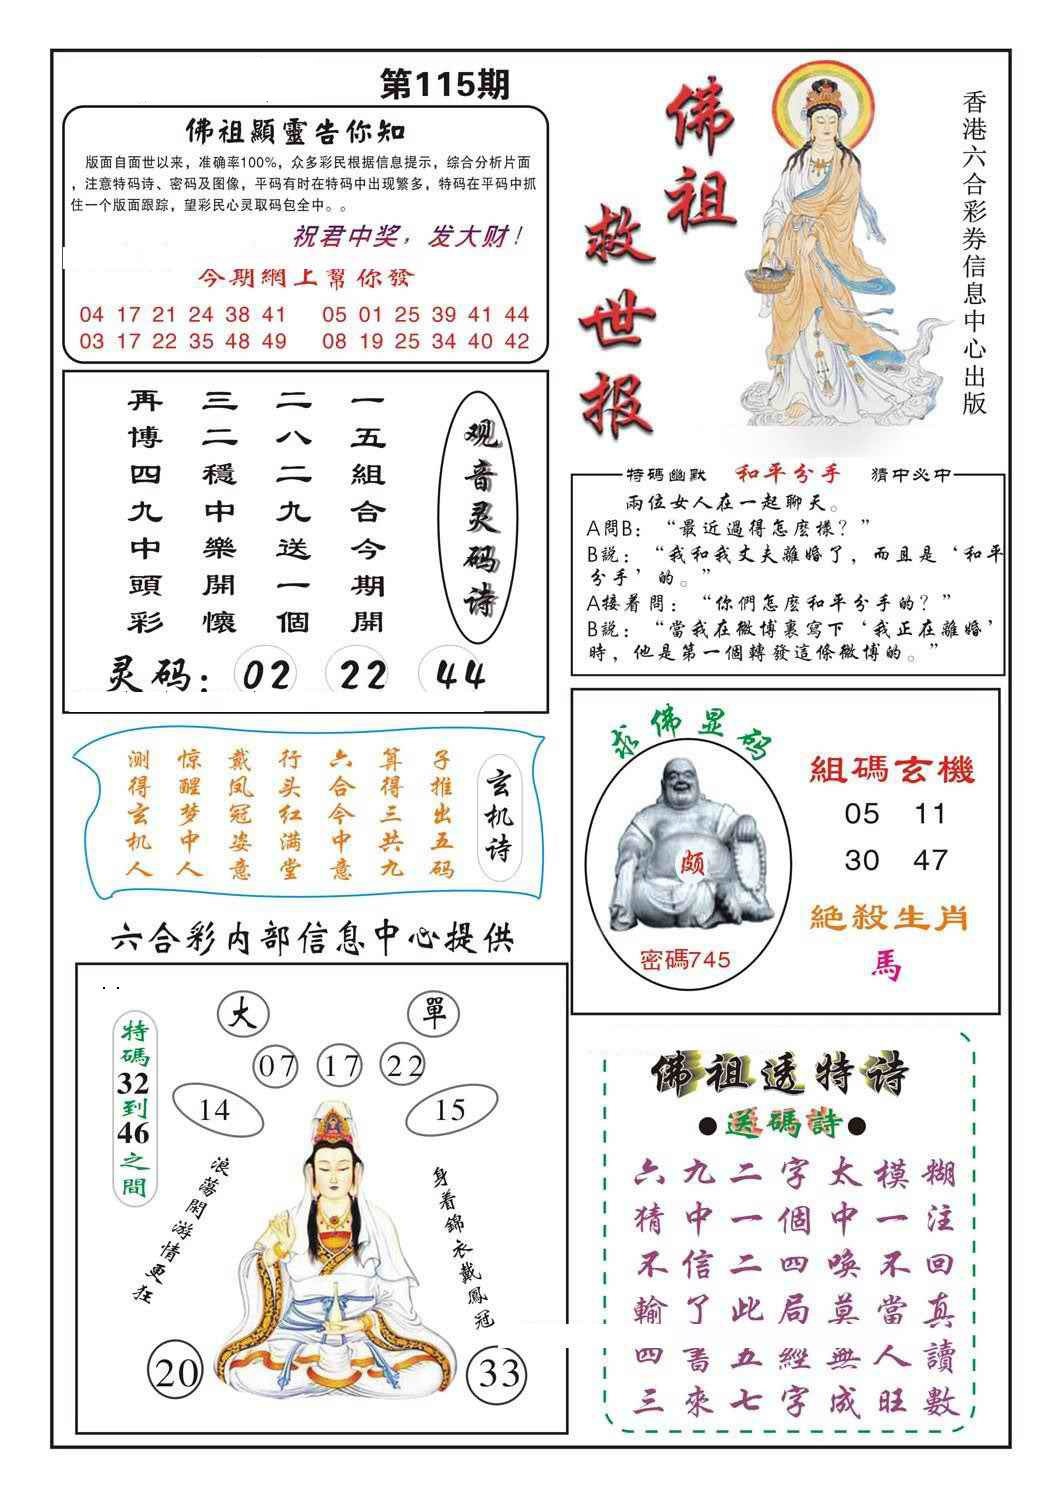 第115期
佛祖顯靈告你知
版面自面世以来，准确率100%，众多彩民根据信息提示，综合分析片面
，注意特码诗、密码及图像，平码有时在特码中出现繁多，特码在平码中抓
住一个版面跟踪，望彩民心灵取码包全中。。
祝君中奖，发大财！
今期網上幫你發
04 17 21 24 38 41 05 01 25 39 41 44
03 17 22 35 48 49 08 19 25 34 40 42
佛祖
救世报
香港六合彩券信息中心出版
观音灵码诗
一五組合今期開
二八二九送一個
三二穩中樂開懷
再博四九中頭彩
灵码：02 22 44
特碼幽默 和平分手 猜中必中
兩位女人在一起聊天。
A問B：“最近過得怎麽樣？”
B説：“我和我丈夫離婚了，而且是‘和平
分手’的。”
A接着問：“你們怎麽和平分手的？”
B説：“當我在微博裏寫下‘我正在離婚’
時，他是第一個轉發這條微博的。”
玄机诗
子推出五码
算得三共九
六合今中意
行头红满堂
戴凤冠姿意
惊醒梦中人
测得玄机人
求佛显码
颇
密碼745
組碼玄機
05 11
30 47
絕殺生肖
馬
六合彩内部信息中心提供
特碼32到46之間
大 單
07 17 22
14 15
浪蕩閑游情更狂
身着錦衣戴鳳冠
20 33
佛祖透特诗
●送碼詩●
六九二字太模糊
猜中一個中一注
不信二四唤不回
輸了此局莫當真
四書五經無人讀
三來七字成旺數